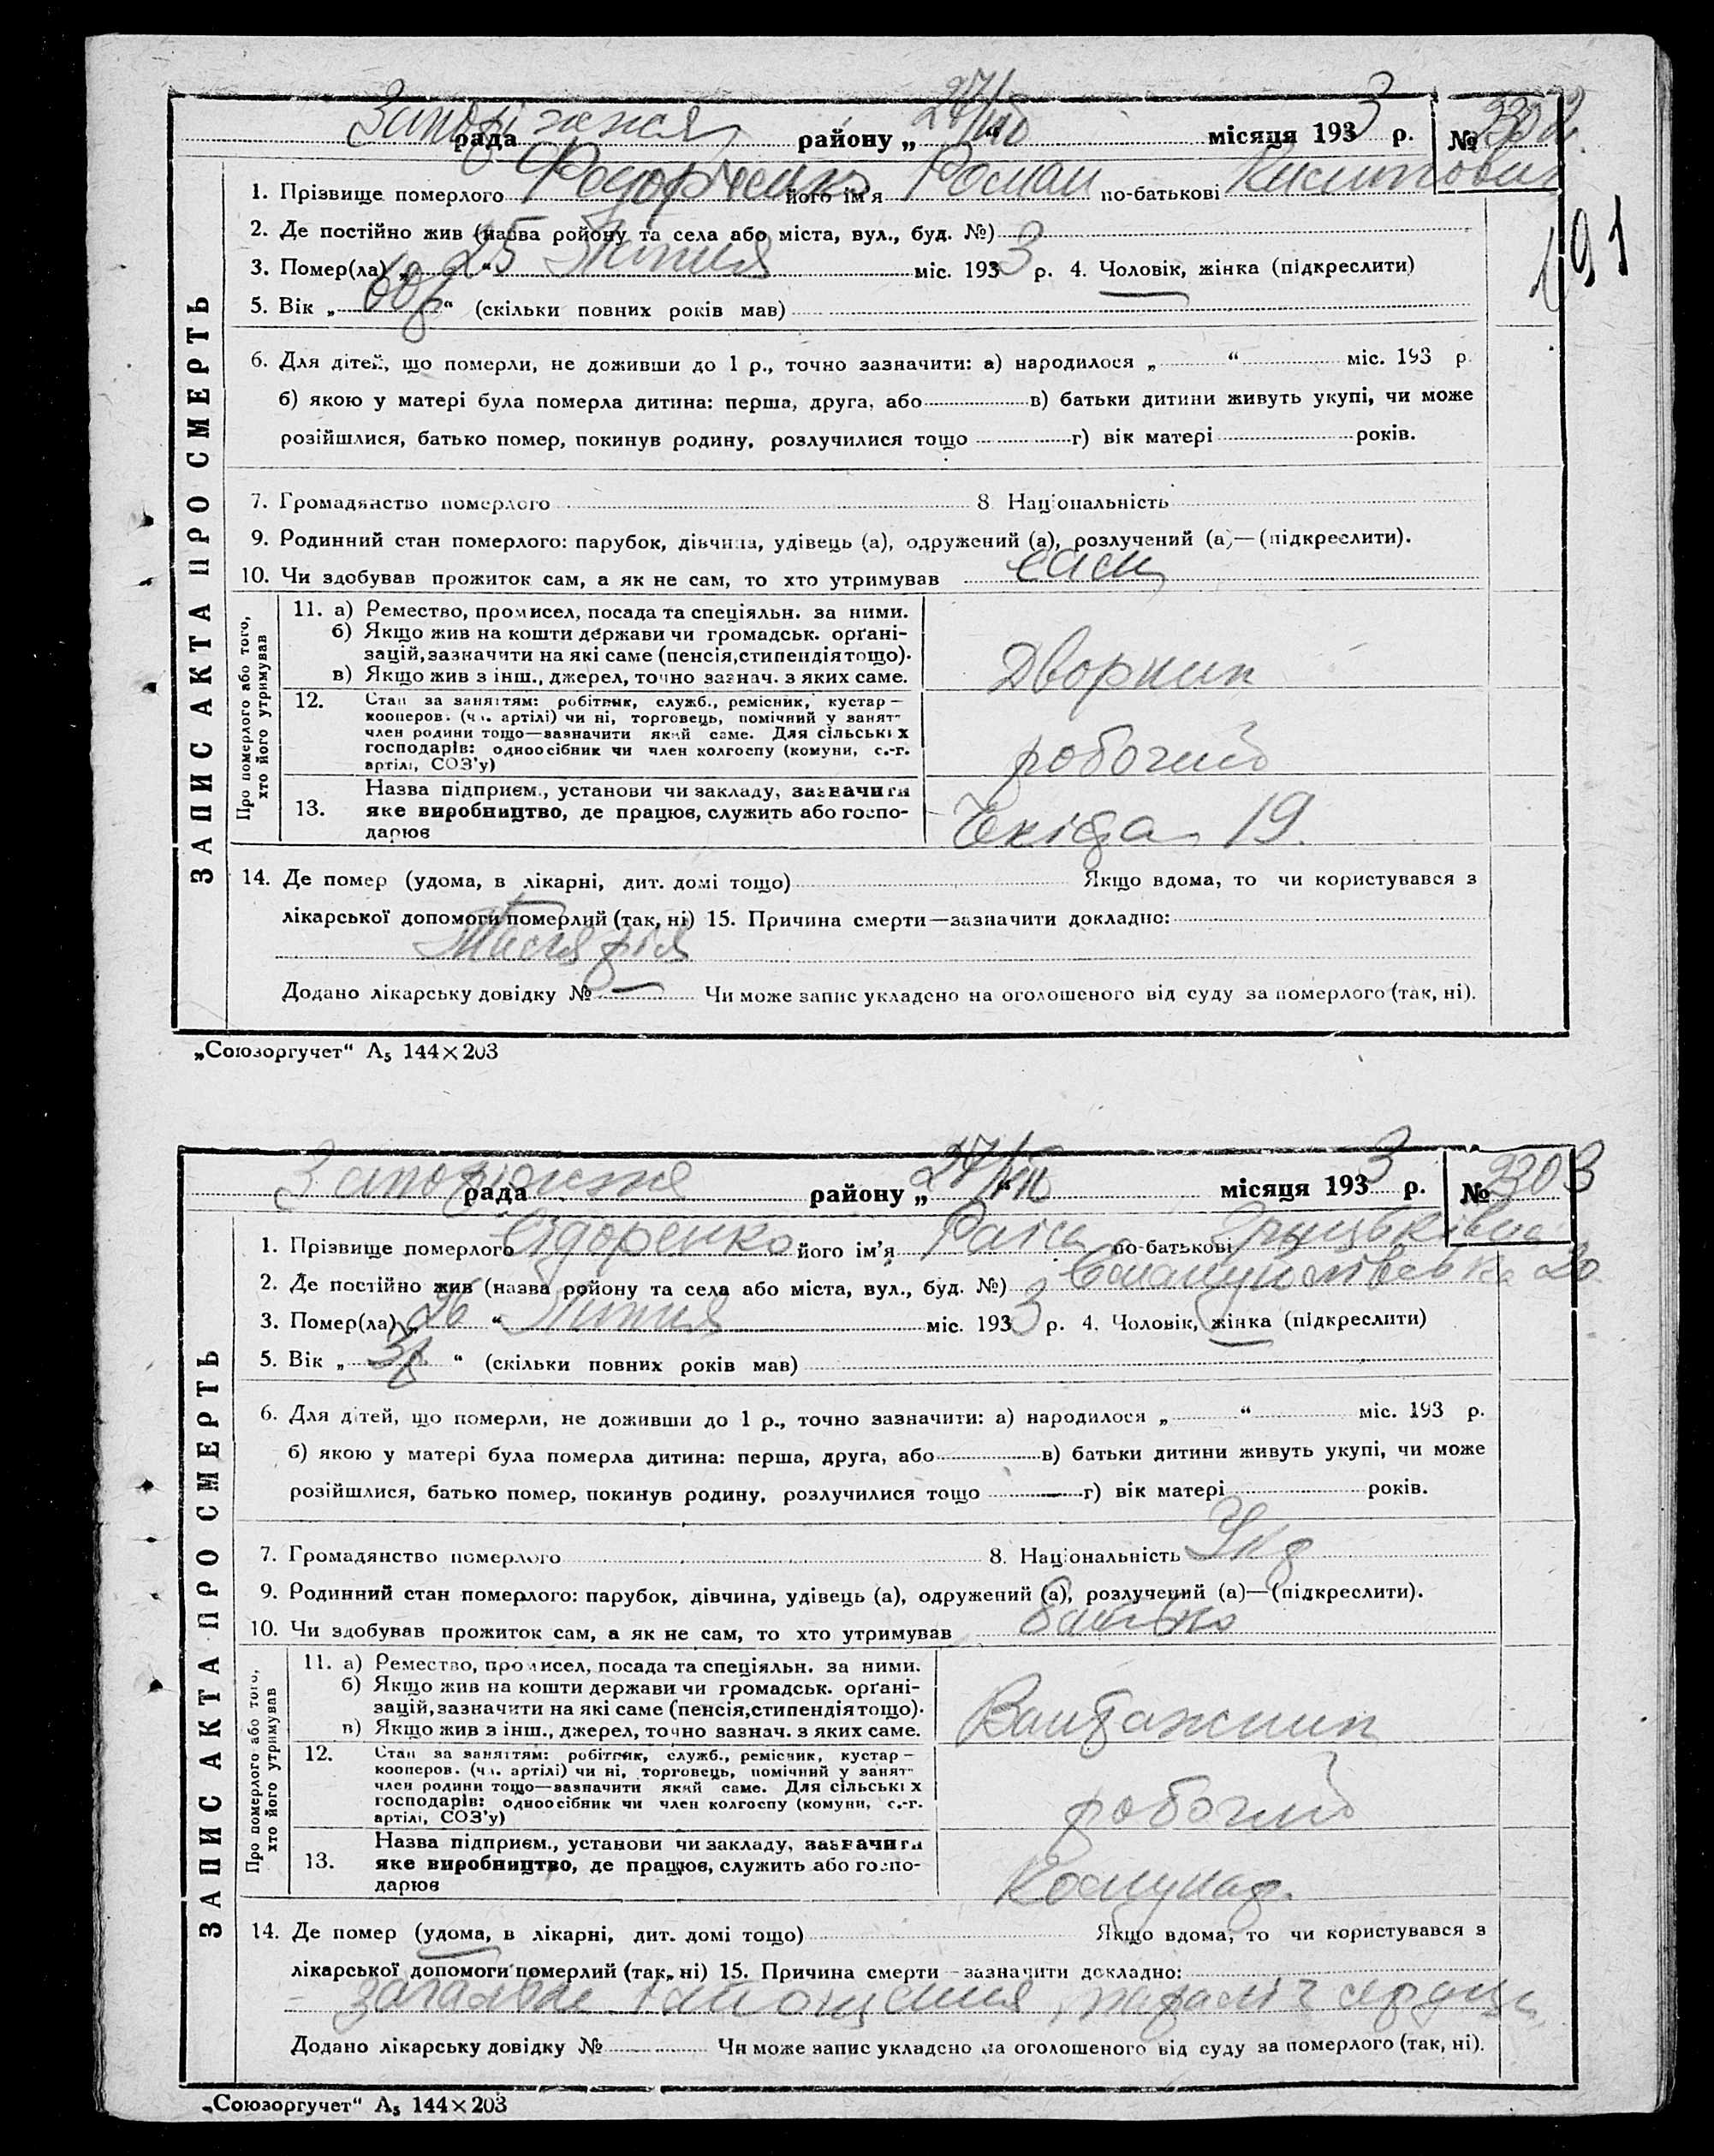 Запоріжжя рада району „ 27/VII “ місяця 1933 р. № 3302
191
1. Прізвище померлого його ім'я Роман по-батькові
2. Де постійно жив (назва ройону та села або міста, вул., буд. №)
3. Помер(ла) „ 25 “ Липня міс. 1933 р. 4. Чоловік, жінка (підкреслити)
5. Вік „ 60р “ (скільки повних років мав)
6. Для дітей, що померли, не доживши до 1 р., точно зазначити: а) народилося „ “ міс. 193 р.
б) якою у матері була померла дитина: перша, друга, або в) батьки дитини живуть укупі, чи може
розійшлися, батько помер, покинув родину, розлучилися тощо г) вік матері років.
7. Громадянство померлого 8. Національність
9. Родинний стан померлого: парубок, дівчина, удівець (а), одружений (а), розлучений (а)—(підкреслити).
10. Чи здобував прожиток сам, а як не сам, то хто утримував сам
ЗАПИС АКТА ПРО СМЕРТЬ
Про померлого або того, хто його утримував
11. а) Ремество, промисел, посада та спеціяльн. за ними.
б) Якщо жив на кошти держави чи громадськ. орґані-
зацій, зазначити на які саме (пенсія, стипендія тощо).
в) Якщо жив з інш., джерел, точно зазнач. з яких саме.
Дворник
12. Стан за заняттям: робітник, служб., ремісник, кустар—
кооперов. (чл. артілі) чи ні, торговець, помічний у занят-
член родини тощо—зазначити який саме. Для сільських
господарів: одноосібник чи член колгоспу (комуни, с.-г.
артілі, СОЗ'у)
робочий
13. Назва підприєм., установи чи закладу, зазначити
яке виробництво, де працює, служить або госпо-
дарює
19.
14. Де помер (удома, в лікарні, дит. домі тощо) Якщо вдома, то чи користувався з
лікарської допомоги померлий (так, ні) 15. Причина смерти—зазначити докладно:
Малярія
Додано лікарську довідку № — Чи може запис укладено на оголошеного від суду за померлого (так, ні).
„Союзоргучет“ А5 144×203
Запоріжжя рада району „ 27/VII “ місяця 1933 р. № 3303
1. Прізвище померлого Сідоренко його ім'я Раїса по-батькові Грицьківна
2. Де постійно жив (назва ройону та села або міста, вул., буд. №) 20
3. Помер(ла) „ 26 “ Липня міс. 1933 р. 4. Чоловік, жінка (підкреслити)
5. Вік „ 3р “ (скільки повних років мав)
6. Для дітей, що померли, не доживши до 1 р., точно зазначити: а) народилося „ “ міс. 193 р.
б) якою у матері була померла дитина: перша, друга, або в) батьки дитини живуть укупі, чи може
розійшлися, батько помер, покинув родину, розлучилися тощо г) вік матері років.
7. Громадянство померлого 8. Національність Укр
9. Родинний стан померлого: парубок, дівчина, удівець (а), одружений (а), розлучений (а)—(підкреслити).
10. Чи здобував прожиток сам, а як не сам, то хто утримував батько
ЗАПИС АКТА ПРО СМЕРТЬ
Про померлого або того, хто його утримував
11. а) Ремество, промисел, посада та спеціяльн. за ними.
б) Якщо жив на кошти держави чи громадськ. орґані-
зацій, зазначити на які саме (пенсія, стипендія тощо).
в) Якщо жив з інш., джерел, точно зазнач. з яких саме.
Вантажник
12. Стан за заняттям: робітник, служб., ремісник, кустар—
кооперов. (чл. артілі) чи ні, торговець, помічний у занят-
член родини тощо—зазначити який саме. Для сільських
господарів: одноосібник чи член колгоспу (комуни, с.-г.
артілі, СОЗ'у)
робочий
13. Назва підприєм., установи чи закладу, зазначити
яке виробництво, де працює, служить або госпо-
дарює
Комунар.
14. Де помер (удома, в лікарні, дит. домі тощо) Якщо вдома, то чи користувався з
лікарської допомоги померлий (так, ні) 15. Причина смерти—зазначити докладно:
загальне параліч серця
Додано лікарську довідку № Чи може запис укладено на оголошеного від суду за померлого (так, ні).
„Союзоргучет“ А5 144×203